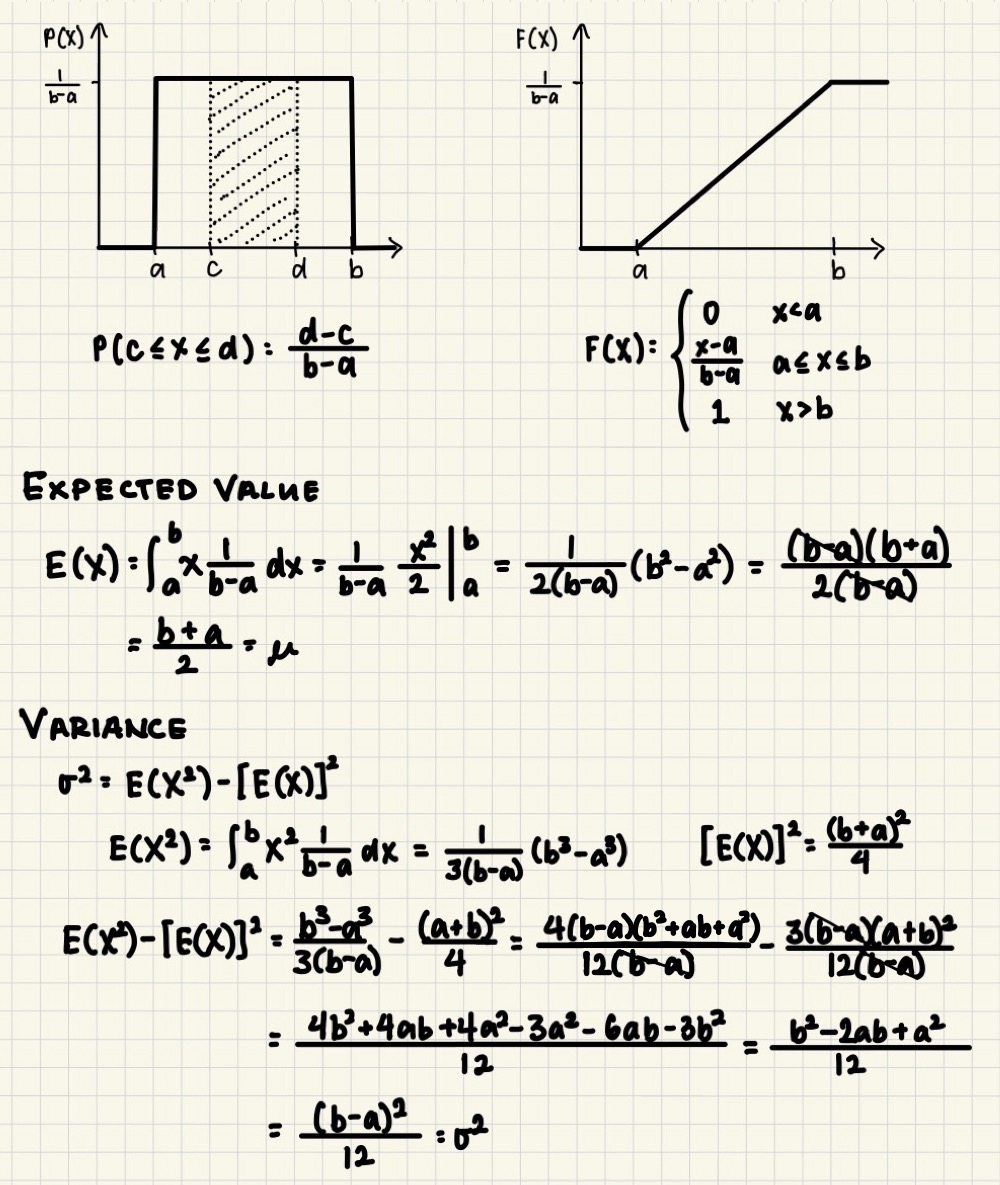 P(X)
1/(b-a)
a c d b
F(X)
1/(b-a)
a b
P(c ≤ x ≤ d) = (d-c)/(b-a)
F(X) = { 0 x<a
(x-a)/(b-a) a ≤ x ≤ b
1 x>b
EXPECTED VALUE
E(X) = ∫_a^b x 1/(b-a) dx = 1/(b-a) x²/2 |_a^b = 1/(2(b-a)) (b²-a²) = (b-a)(b+a)/(2(b-a))
= (b+a)/2 = μ
VARIANCE
σ² = E(X²) - [E(X)]²
E(X²) = ∫_a^b X² 1/(b-a) dx = 1/(3(b-a)) (b³-a³) [E(X)]² = (b+a)²/4
E(X²) - [E(X)]² = (b³-a³)/(3(b-a)) - (a+b)²/4 = 4(b-a)(b²+ab+a²)/(12(b-a)) - 3(b-a)(a+b)²/(12(b-a))
= (4b²+4ab+4a²-3a²-6ab-3b²)/12 = (b²-2ab+a²)/12
= (b-a)²/12 = σ²